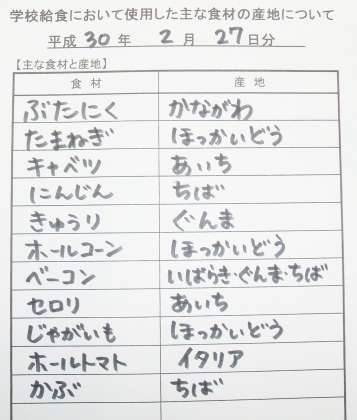 学校給食において使用した主な食材の産地について
平成 30 年 2 月 27 日分
【主な食材と産地】
食材 産地
ぶたにく かながわ
たまねぎ ほっかいどう
キャベツ あいち
にんじん ちば
きゅうり ぐんま
ホールコーン ほっかいどう
ベーコン いばらき・ぐんま・ちば
セロリ あいち
じゃがいも ほっかいどう
ホールトマト イタリア
かぶ ちば